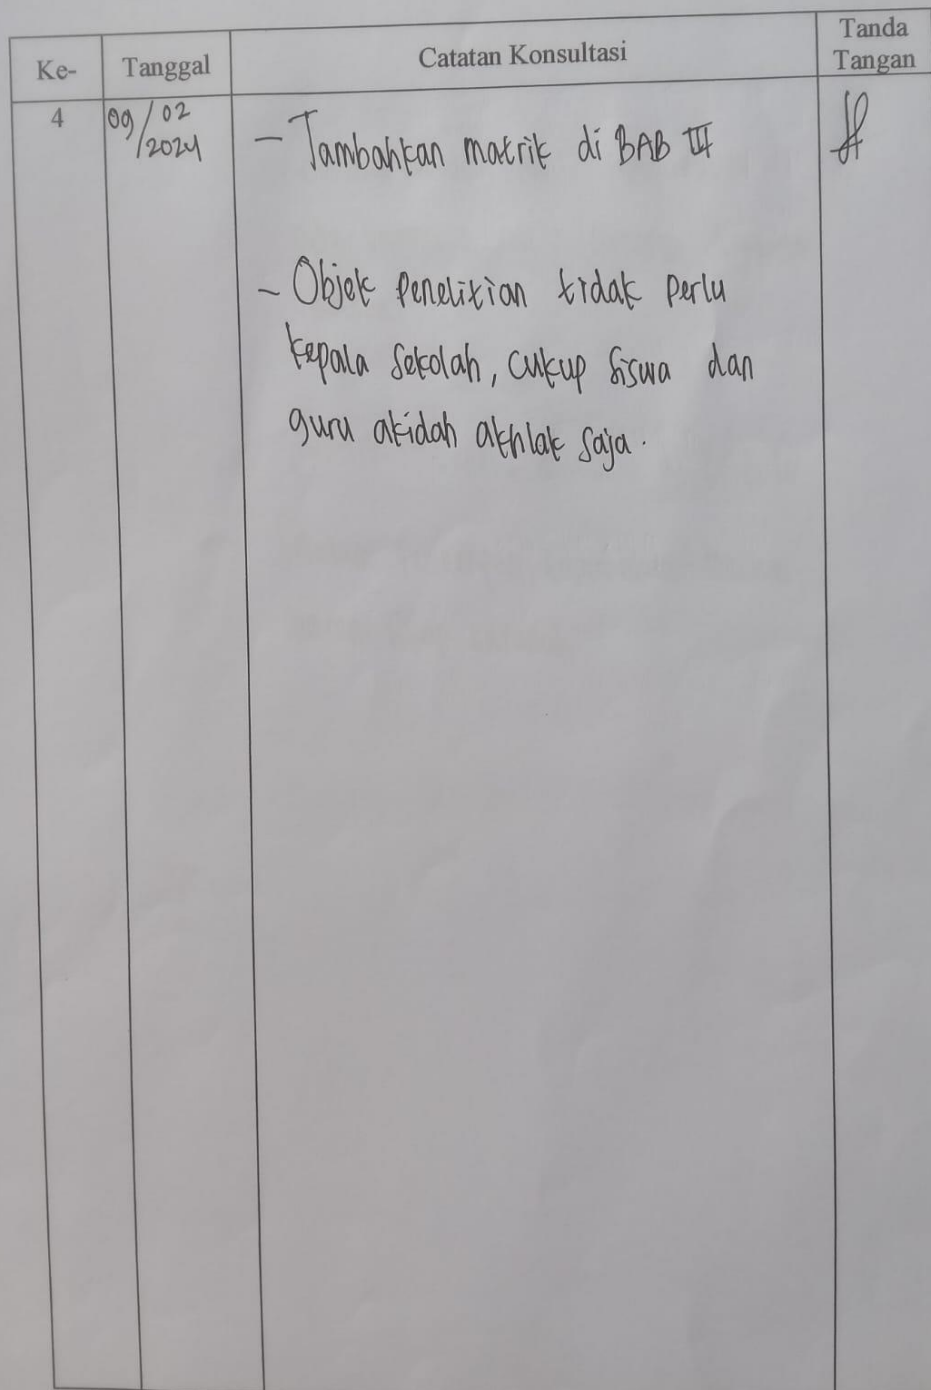 Ke- Tanggal Catatan Konsultasi Tanda Tangan
4 09/02/2024 - Tambahkan matrik di BAB III
- Objek Penelitian tidak perlu
kepala sekolah, cukup siswa dan
guru akidah akhlak saja.